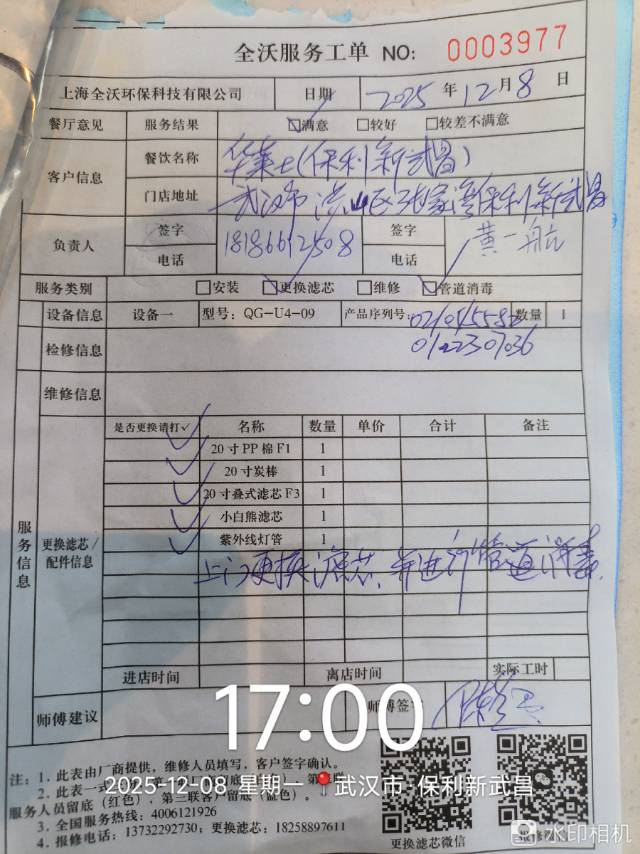 全沃服务工单 NO: 0003977
上海全沃环保科技有限公司 日期 2025年12月8日
餐厅意见 服务结果 ☑满意 □较好 □较差不满意
客户信息 餐饮名称 华莱士(保利新武昌)
门店地址 武汉市洪山区张家湾保利新武昌
负责人 签字 签字 黄一航
电话 18186612508 电话
服务类别 □安装 ☑更换滤芯 □维修 ☑管道消毒
设备信息 设备一 型号: QG-U4-09 产品序列号: 数量 1
0122307036
检修信息
维修信息
服务信息
更换滤芯/配件信息
是否更换请打✓ 名称 数量 单价 合计 备注
✓ 20寸PP棉F1 1
✓ 20寸炭棒 1
✓ 20寸叠式滤芯F3 1
✓ 小白熊滤芯 1
✓ 紫外线灯管 1
上门更换滤芯,并进行管道消毒.
进店时间 离店时间 实际工时
师傅建议 师傅签字
17:00
2025-12-08 星期一 武汉市·保利新武昌
注: 1. 此表由厂商提供, 维修人员填写, 客户签字确认。
2. 此表一式
服务人员留底(红色), 第三联客户留底(蓝色)。
3. 全国服务热线: 4006121926
4. 报修电话: 13732292730; 更换滤芯: 18258897611
更换滤芯微信
水印相机